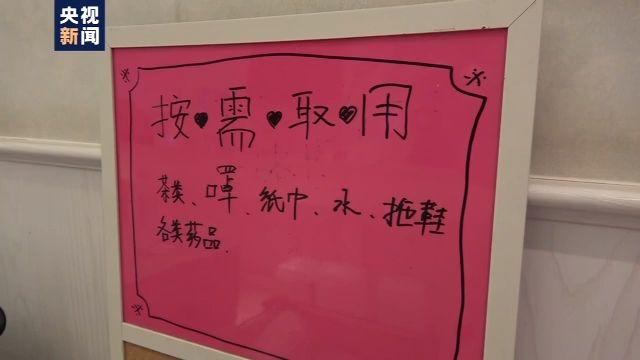 央视
新闻
按♥需♥取♥用
茶类、口罩、纸巾、水、拖鞋
各类药品